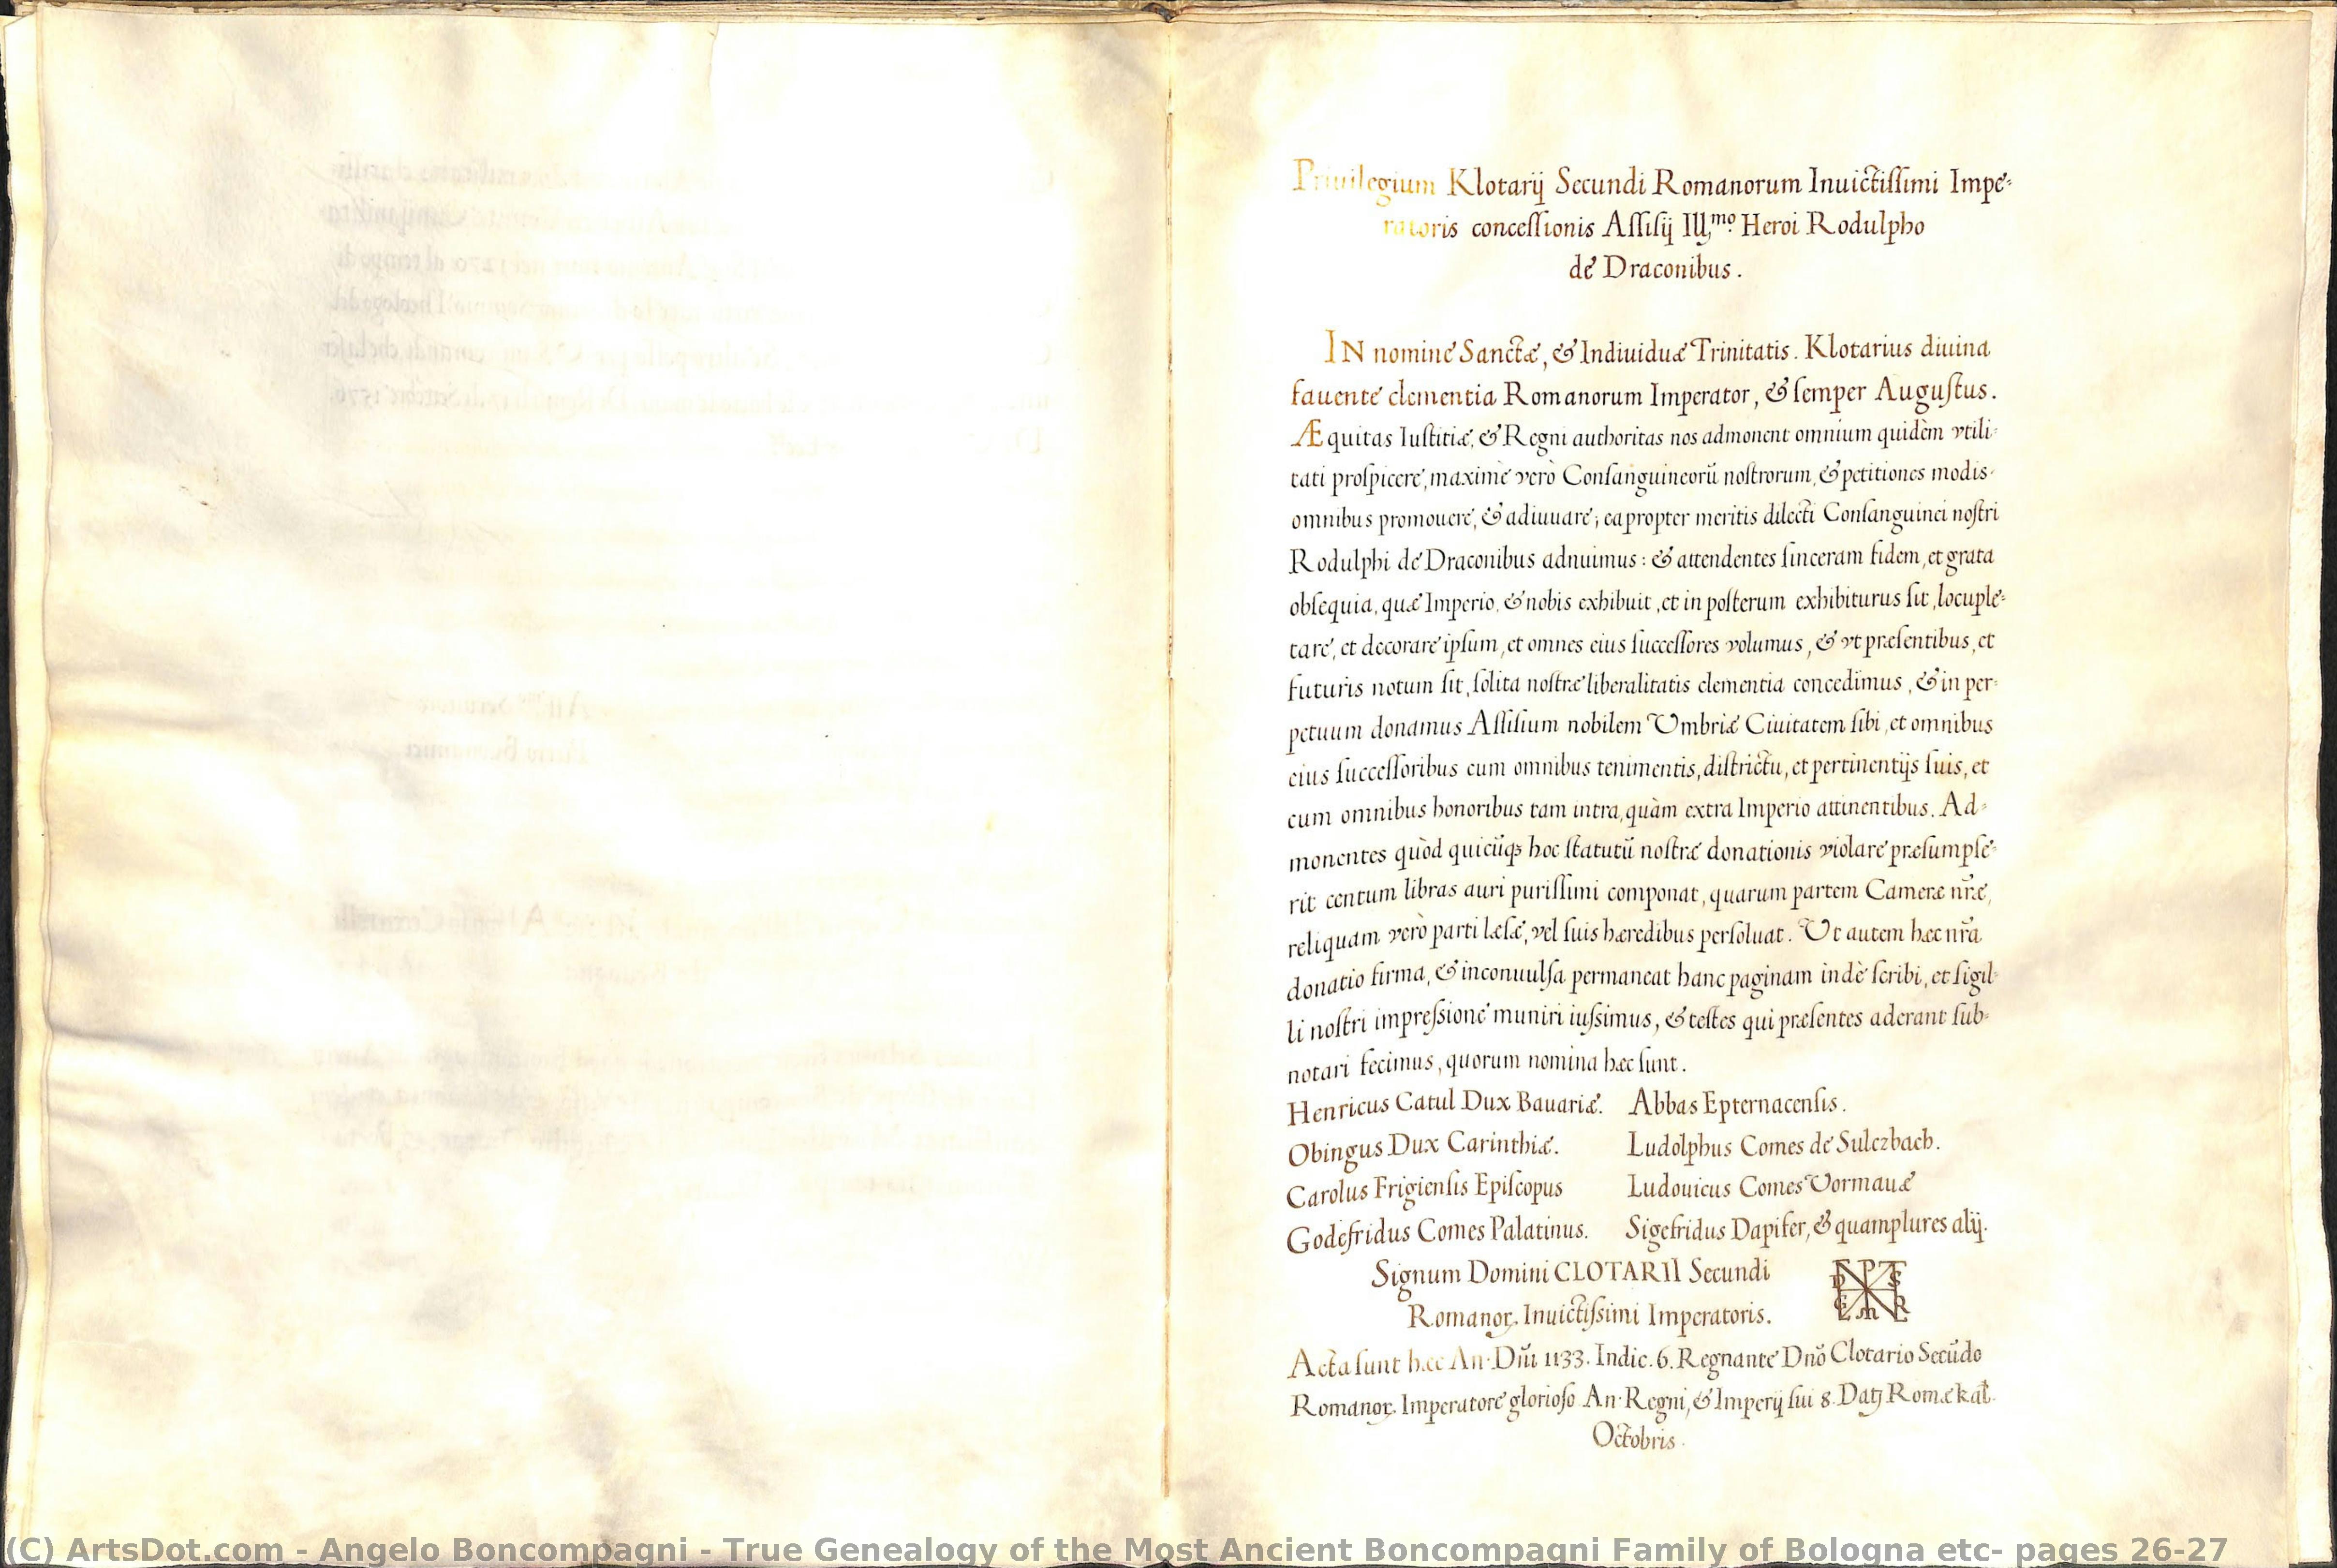 Priuilegium Klotarij Secundi Romanorum Inuictiſſimi Impe-
ratoris conceſſionis Aſſiſij Ill.mo Heroi Rodulpho
de Draconibus.
IN nomine Sanctæ, & Indiuiduæ Trinitatis. Klotarius diuina
fauente clementia Romanorum Imperator, & ſemper Auguſtus.
Æquitas Iuſtitiæ, & Regni authoritas nos admonent omnium quidèm vtili-
tati proſpicere, maximè verò Conſanguineorũ noſtrorum, & petitiones modis
omnibus promouere, & adiuuare; eapropter meritis dilecti Conſanguinei noſtri
Rodulphi de Draconibus adnuimus: & attendentes ſinceram fidem, et grata
obſequia, quæ Imperio, & nobis exhibuit, et in poſterum exhibiturus ſit, locuple-
tare, et decorare ipſum, et omnes eius ſucceſſores volumus, & vt præſentibus, et
futuris notum ſit, ſolita noſtræ liberalitatis clementia concedimus, & in per-
petuum donamus Aſſiſium nobilem Vmbriæ Ciuitatem ſibi, et omnibus
eius ſucceſſoribus cum omnibus tenimentis, diſtrictu, et pertinentijs ſuis, et
cum omnibus honoribus tam intra, quàm extra Imperio attinentibus. Ad-
monentes quòd quicũqȝ hoc ſtatutũ noſtræ donationis violare præſumpſe-
rit centum libras auri puriſſimi componat, quarum partem Cameræ nr̃æ,
reliquam verò parti læſæ, vel ſuis hæredibus perſoluat. Vt autem hæc nr̃a
donatio firma, & inconuulſa permaneat hanc paginam indè ſcribi, et ſigil-
li noſtri impreſsione muniri iuſsimus, & teſtes qui præſentes aderant ſub-
notari fecimus, quorum nomina hæc ſunt.
Henricus Catul Dux Bauariæ. Abbas Epternacenſis.
Obingus Dux Carinthiæ. Ludolphus Comes de Sulczbach.
Carolus Frigienſis Epiſcopus Ludouicus Comes Vormauæ
Godefridus Comes Palatinus. Sigefridus Dapifer, & quamplures alij.
Signum Domini CLOTARII Secundi
Romanoꝝ. Inuictiſsimi Imperatoris.
Acta ſunt hæc An. Dñi 1133. Indic. 6. Regnante Dnõ Clotario Secũdo
Romanoꝝ. Imperatore glorioſo An. Regni, & Imperij ſui 8. Datȝ Romæ kal.
Octobris.
(C) ArtsDot.com - Angelo Boncompagni - True Genealogy of the Most Ancient Boncompagni Family of Bologna etc- pages 26-27